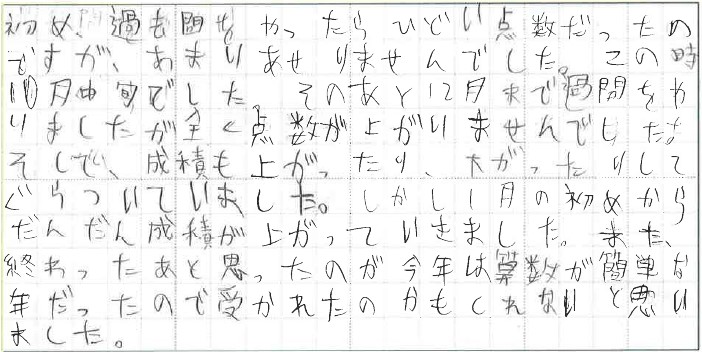 初め、過も間なやったらひどい点数だったの
ですが、あまりあせりませんでした。この時
10月中旬でした。そのあと12月まで過問をや
りましたが全く点数が上がりませんでした。
そして、成積も上がったり、下がったりして
ぐらついていました。しかし1月の初めから
だんだん成積が上がっていきました。また、
終わったあと思ったのが今年は算数が簡単な
年だったので受かれたのかもしれないと思い
ました。